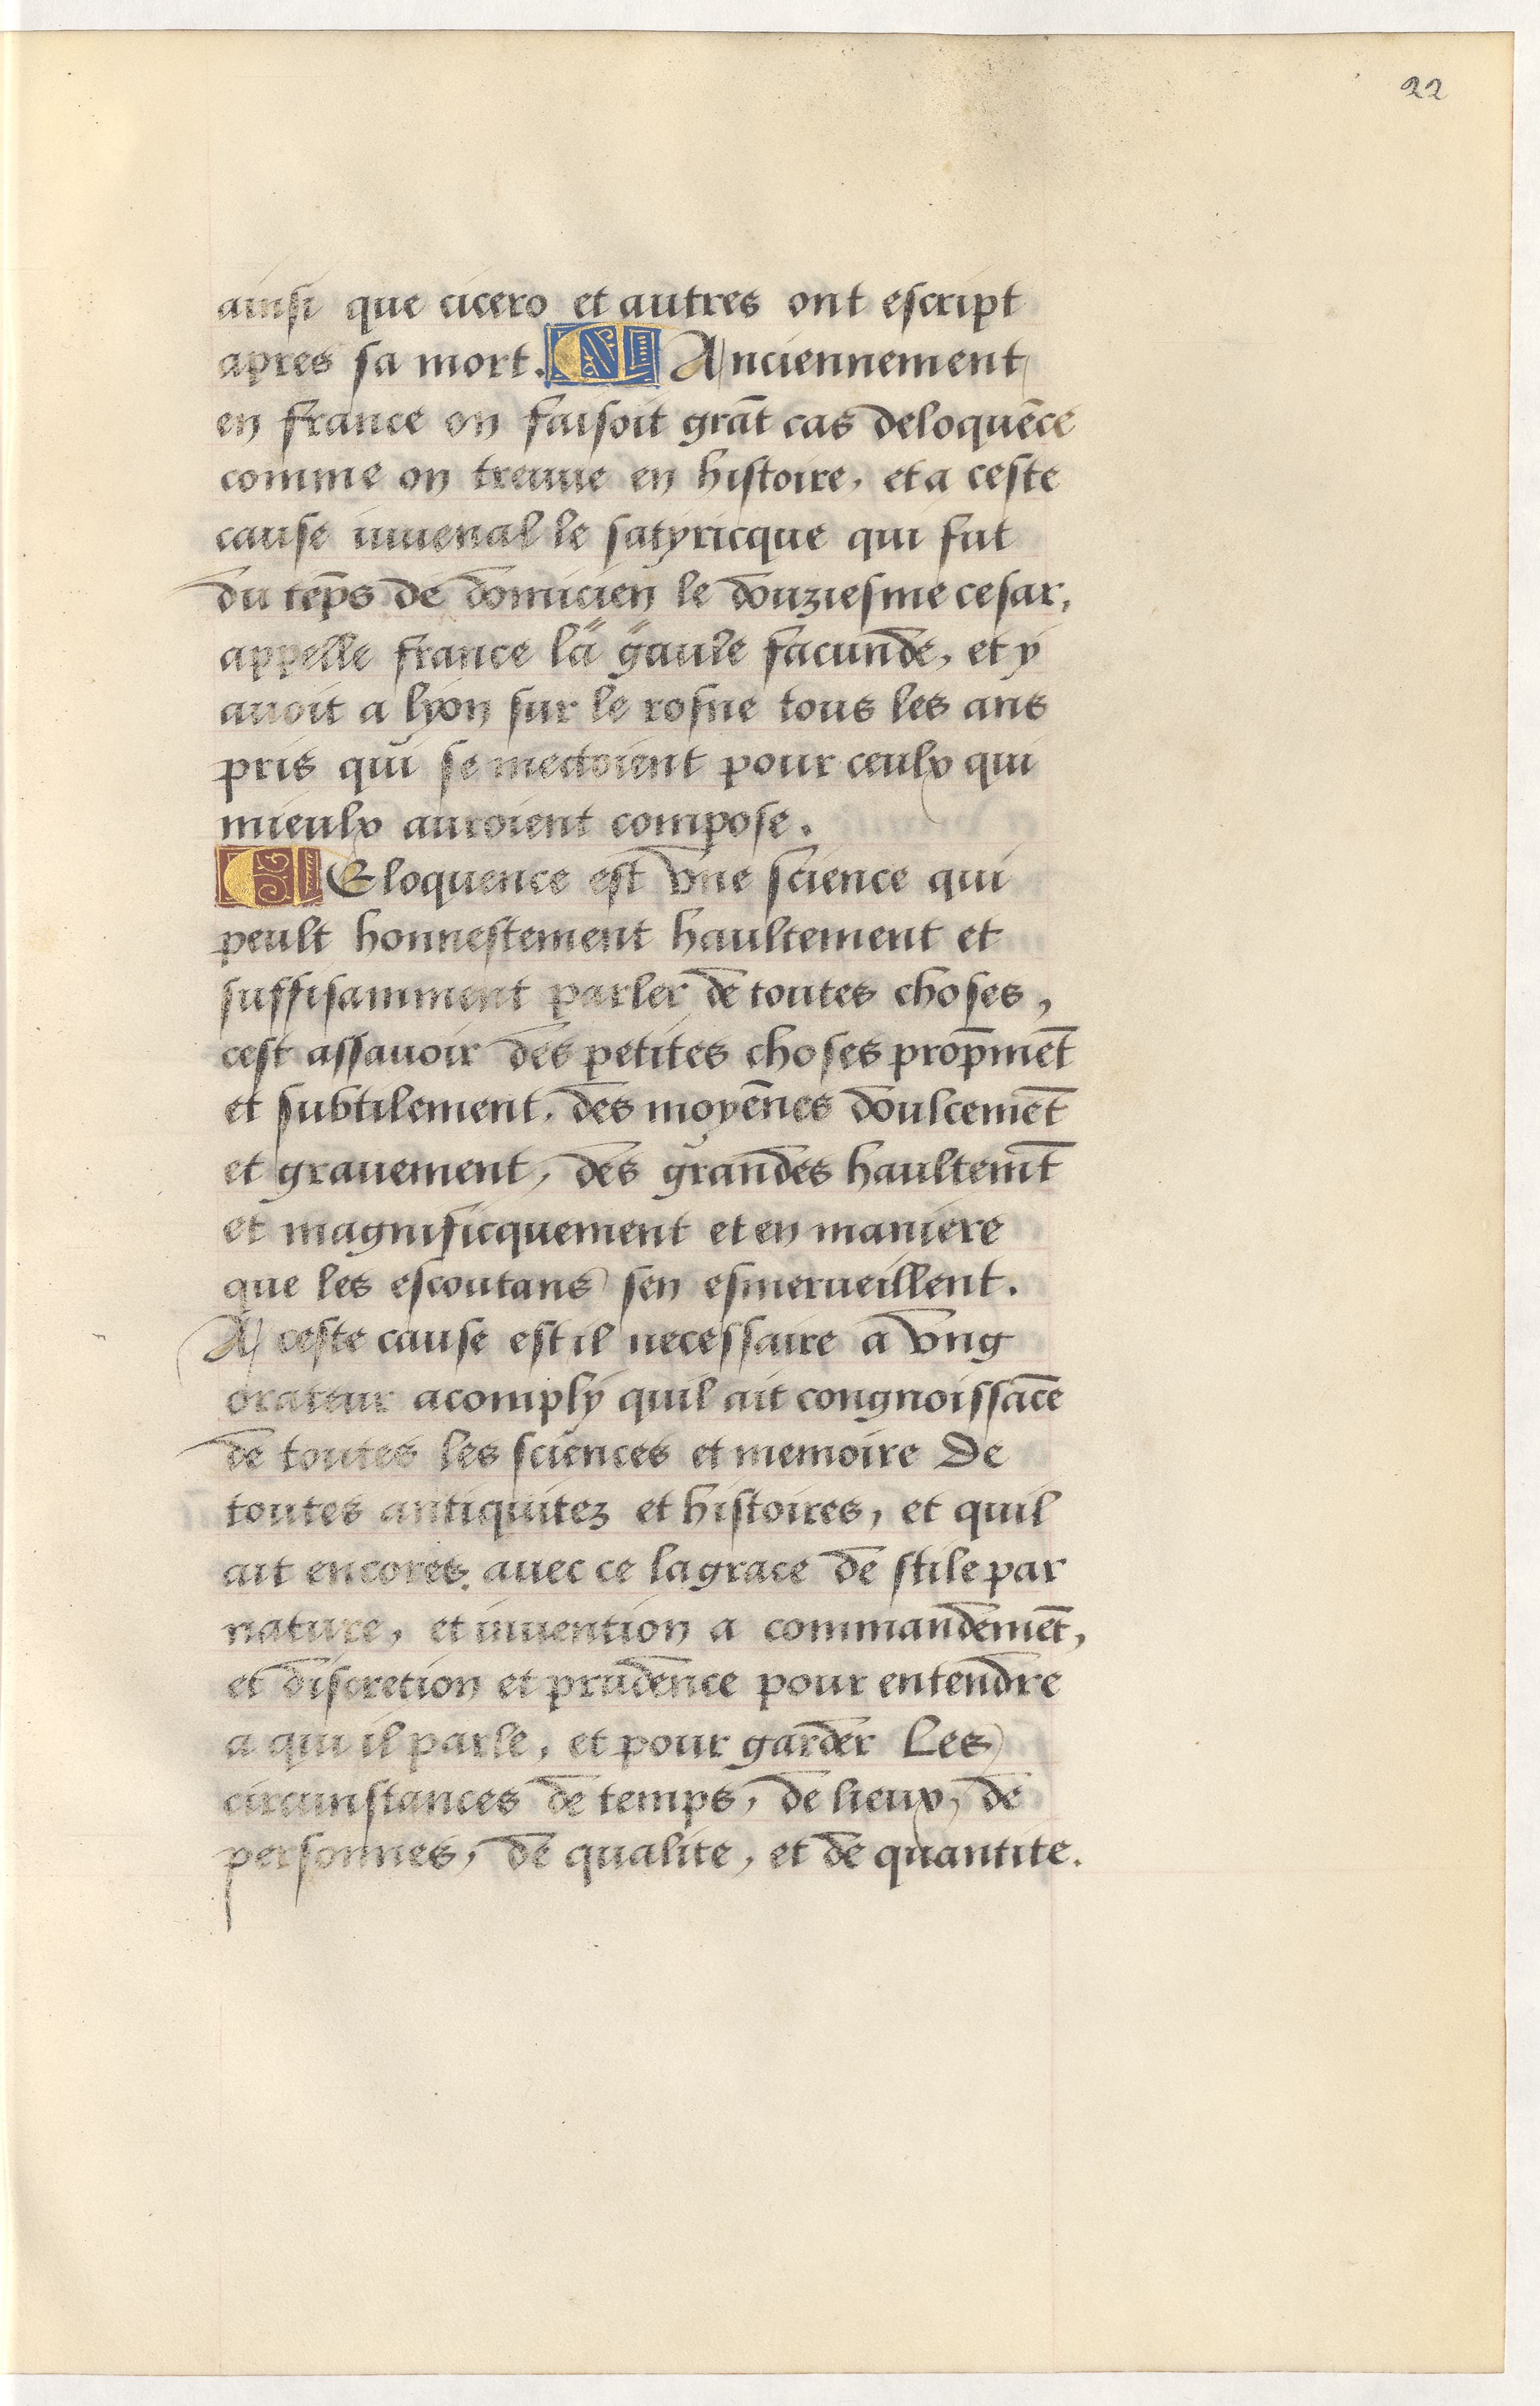 22
ainsi que cicero et autres ont escript
apres sa mort. Anciennement
en france on faisoit grāt cas deloquēce
comme on treuue en histoire, et a ceste
cause iuuenal le satyricque qui fut
du tēps de domicien le douziesme cesar,
appelle france la gaule facunde, et y
auoit a lyon sur le rosne tous les ans
pris qui se mectoient pour ceulx qui
mieulx auroient compose.
Eloquence est vne science qui
peult honnestement haultement et
suffisamment parler de toutes choses,
cest assauoir des petites choses prop̄mēt
et subtilement, des moyēnes doulcemēt
et grauement, des grandes haultem̄t
et magnificquement et en maniere
que les escoutans sen esmerueillent.
A ceste cause est il necessaire a vng
orateur acomply quil ait congnoissāce
de toutes les sciences et memoire De
toutes antiquitez et histoires, et quil
ait encores. auec ce la grace de stile par
nature, et inuention a commandemēt,
et discretion et prudence pour entendre
a qui il parle, et pour garder Les
circunstances de temps, de lieux, de
personnes, de qualite, et de quantite.